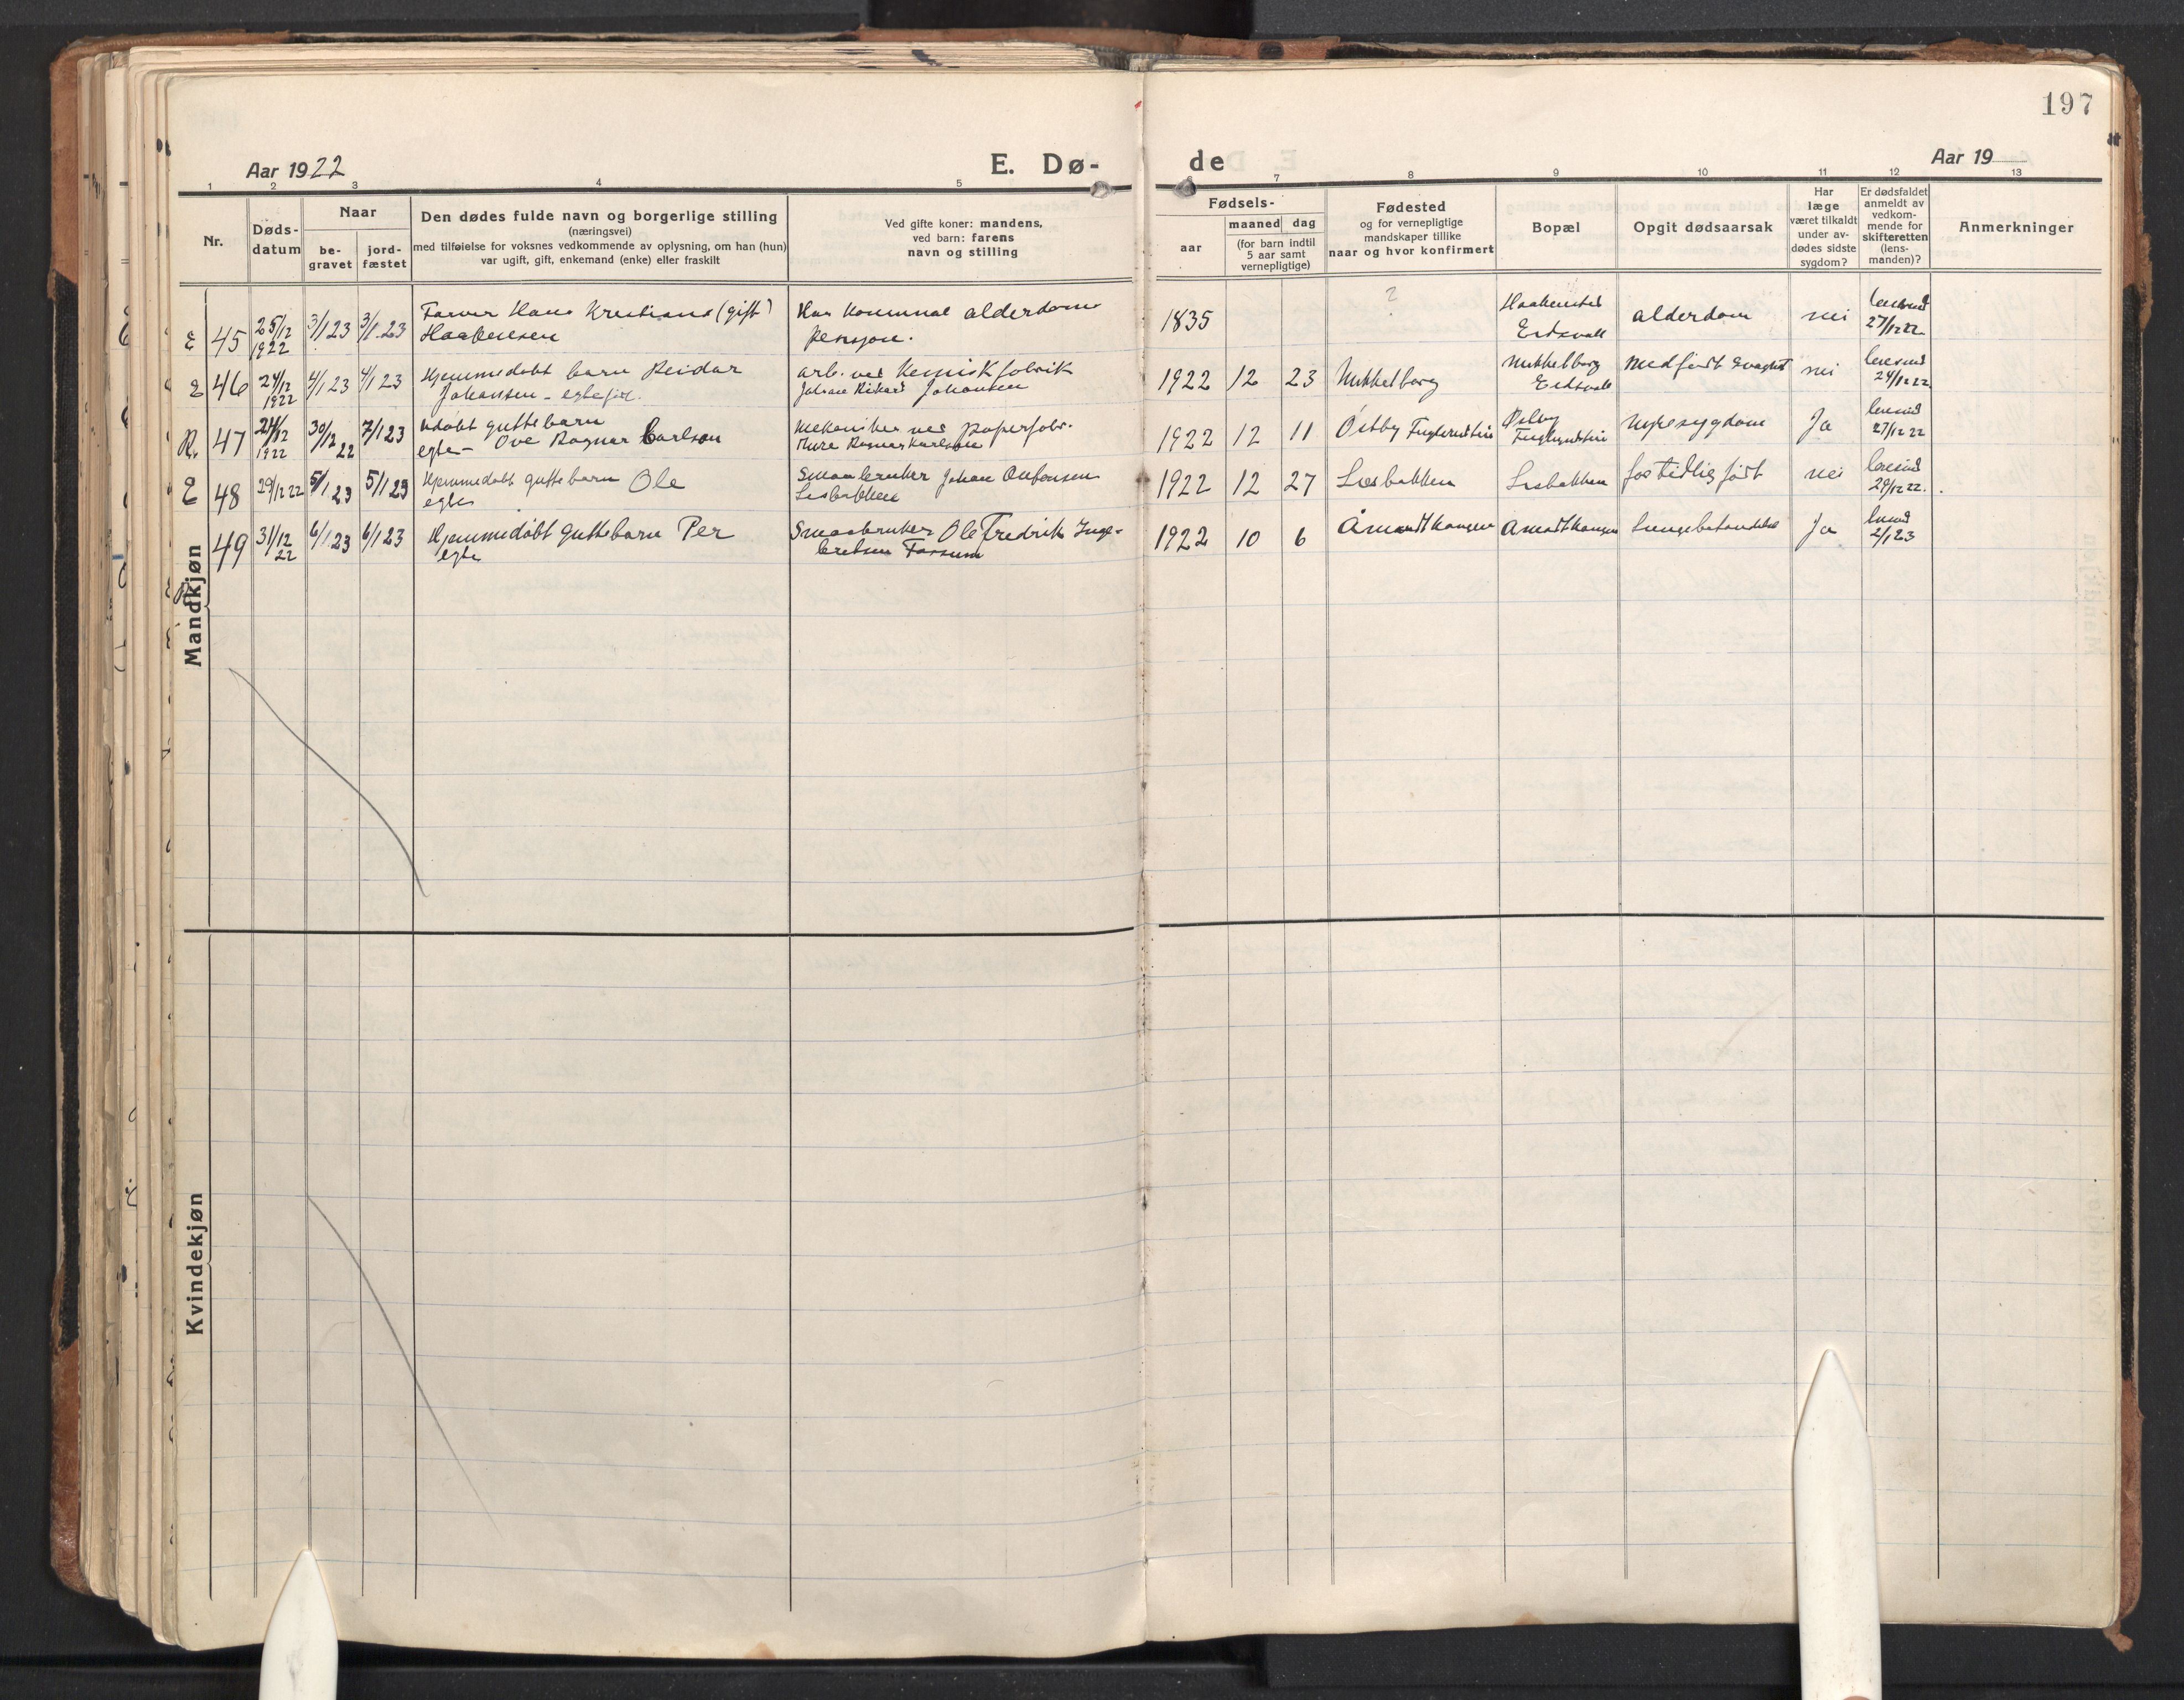 197
Aar 1922
E. Dø-
de
Aar 19
1 2 3 4 5 6 7 8 9 10 11 12 13
Nr.
Døds-
datum
Naar
be-
gravet
jord-
fæstet
Den dødes fulde navn og borgerlige stilling
(næringsvei)
med tilføielse for voksnes vedkommende av oplysning, om han (hun)
var ugift, gift, enkemand (enke) eller fraskilt
Ved gifte koner: mandens,
ved barn: farens
navn og stilling
Fødsels-
aar
maaned dag
(for barn indtil
5 aar samt
vernepligtige)
Fødested
og for vernepligtige
mandskaper tillike
naar og hvor konfirmert
Bopæl
Opgit dødsaarsak
Har
læge
været tilkaldt
under av-
dødes sidste
sygdom?
Er dødsfaldet
anmeldt av
vedkom-
mende for
skifteretten
(lens-
manden)?
Anmerkninger
Mandkjøn
E 45 25/12 1922 3/1 23 3/1 23 Farver Hans Kristians (gift)
Haakensen
Har Kommunal alderdoms
pensjon.
1835 ? Eidsvold alderdom nei 27/12 22
E 46 24/12 1922 4/1 23 4/1 23 Hjemmedøbt barn Reidar
Johansen - egtefød.
arb. ved Kemisk fabrik
Johan Rikard Johansen
1922 12 23 Mikkelborg Mikkelborg
Eidsvold medfødt svaghet nei 24/12 22
R. 47 24/12 1922 30/12 22 7/1 23 Udøbt guttebarn
egte - Ove Ragnar Carlson
Mekaniker ved papirfabr.
Ture Ragnar Karlson
1922 12 11 Østby Østby Nyresygdom Ja 27/12 22
E 48 29/12 22 5/1 23 5/1 23 Hjemmedøbt guttebarn Ole
egte
Smaabruker Johan
1922 12 27 for tidlig født nei 29/12 22.
49 31/12 22 6/1 23 6/1 23 Hjemmedøbt guttebarn Per
egte
Smaabruker Ole Fredrik Inge-
bretsen Fossum
1922 10 6 Lungebetændelse Ja 2/1 23
Kvindekjøn